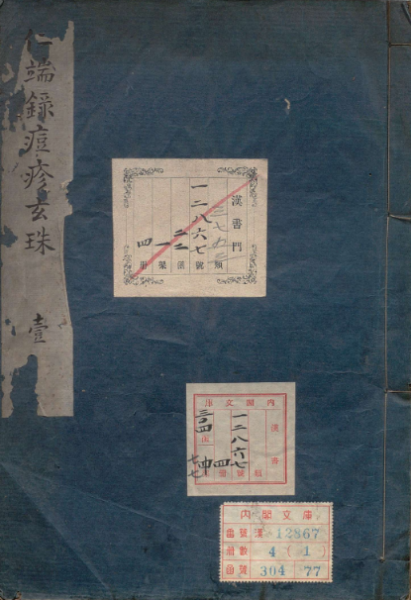 仁端録痘疹玄珠 壹
漢書門
一二八六七
類
號
二二
函
一
架
四
冊
内閣文庫
漢書
一二八六七
四
三〇四
七七
内閣文庫
番號 漢 12867
冊數 4 ( 1 )
函號 304 77